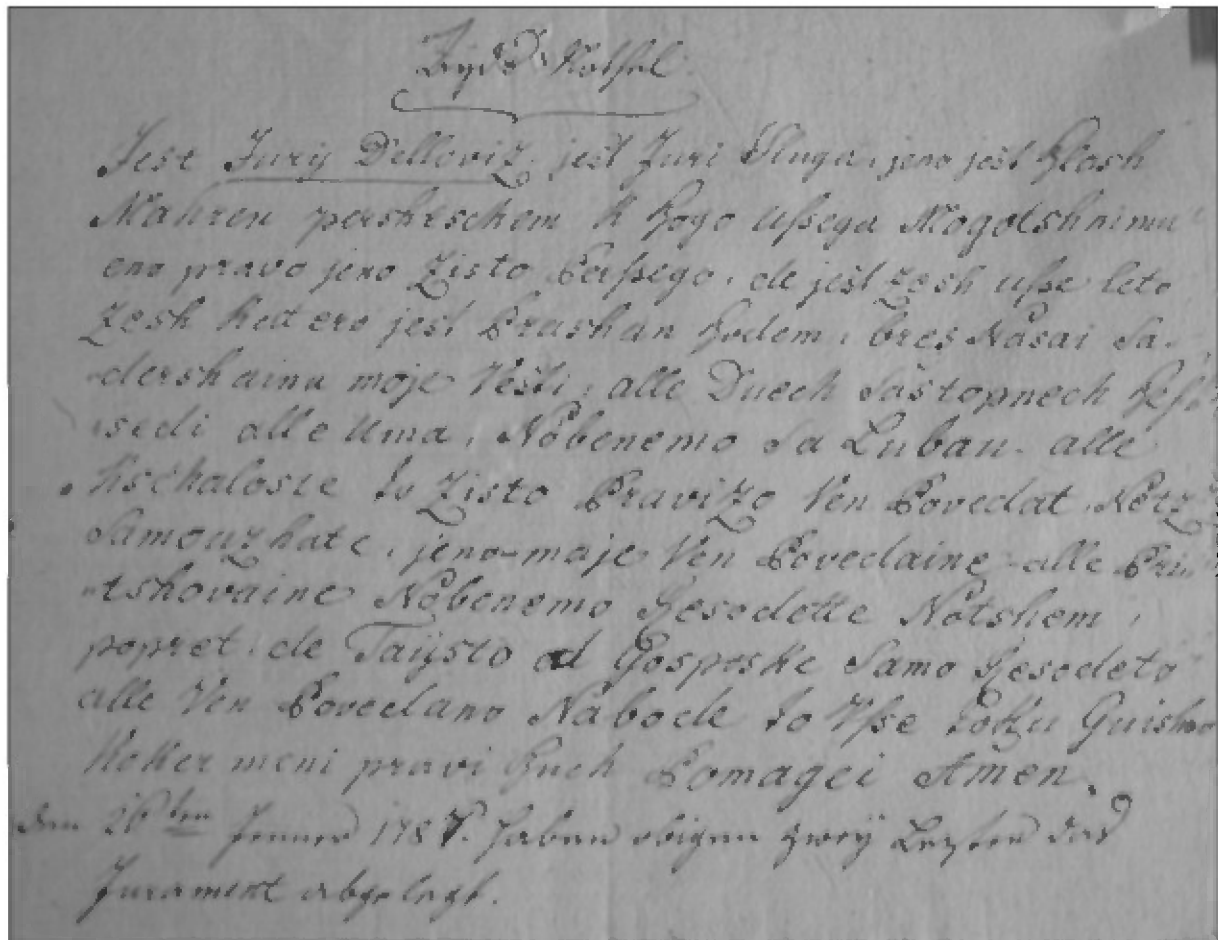 Eyds Nothl
Jest Jurij Delloviz, jest Juri Sluga, jeno jest Blash
Mahren persheschem k Bogo Ussega Mogotshnimu
eno pravo jeno Zisto Persego, de jest zesh usse leto
zesh kattero jest Prashan Bodem, bres Nasai Sa-
dershainu moje Vesti, alle Duech Sastopnech Bess-
sedi alle Uma, Nobenemo Sa Luban alle
Kschaloste to Zisto Pravizo Ven Povedat, Notz
Samouzhate, jeno moje Ven Povedaine alle Pri-
tshovaine Nobenemo Resodette Notshem,
popret, de Taijsto od Gosposke Samo Resodeto
alle Ven Povedano Nabode to Vse toku Guishno
Koker meni pravi Buch Pomagei Amen.
den 26ten Jenner 1787. haben obigen zweÿ Lezten das
Jurament abgelegt.